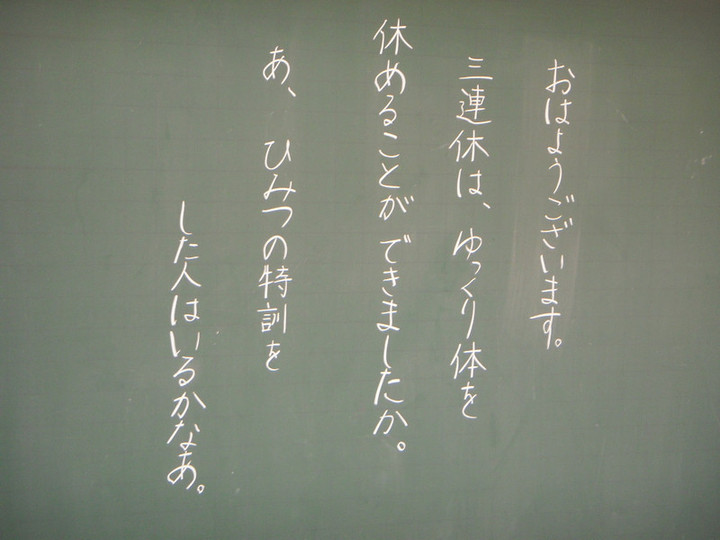 おはようございます。
三連休は、ゆっくり体を
休めることができましたか。
あ、ひみつの特訓を
した人はいるかなあ。